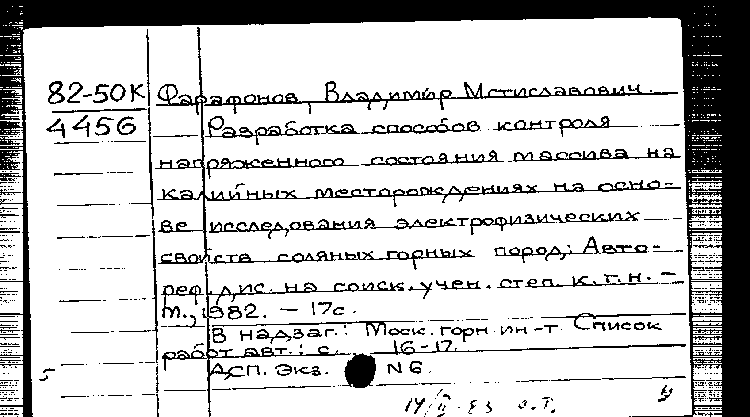 82-50К Фарафонов, Владимир Мстиславович.
4456 Разработка способов контроля
напряженного состояния массива на
калийных месторождениях на осно-
ве исследования электрофизических
свойств соляных горных пород: Авто-
реф. дис. на соиск. учен. степ. к.т.н. -
М., 1982. - 17с.
В надзаг.: Моск. горн. ин-т. Список
работ авт.: с. 16-17.
5 Асп. Экз. N6.